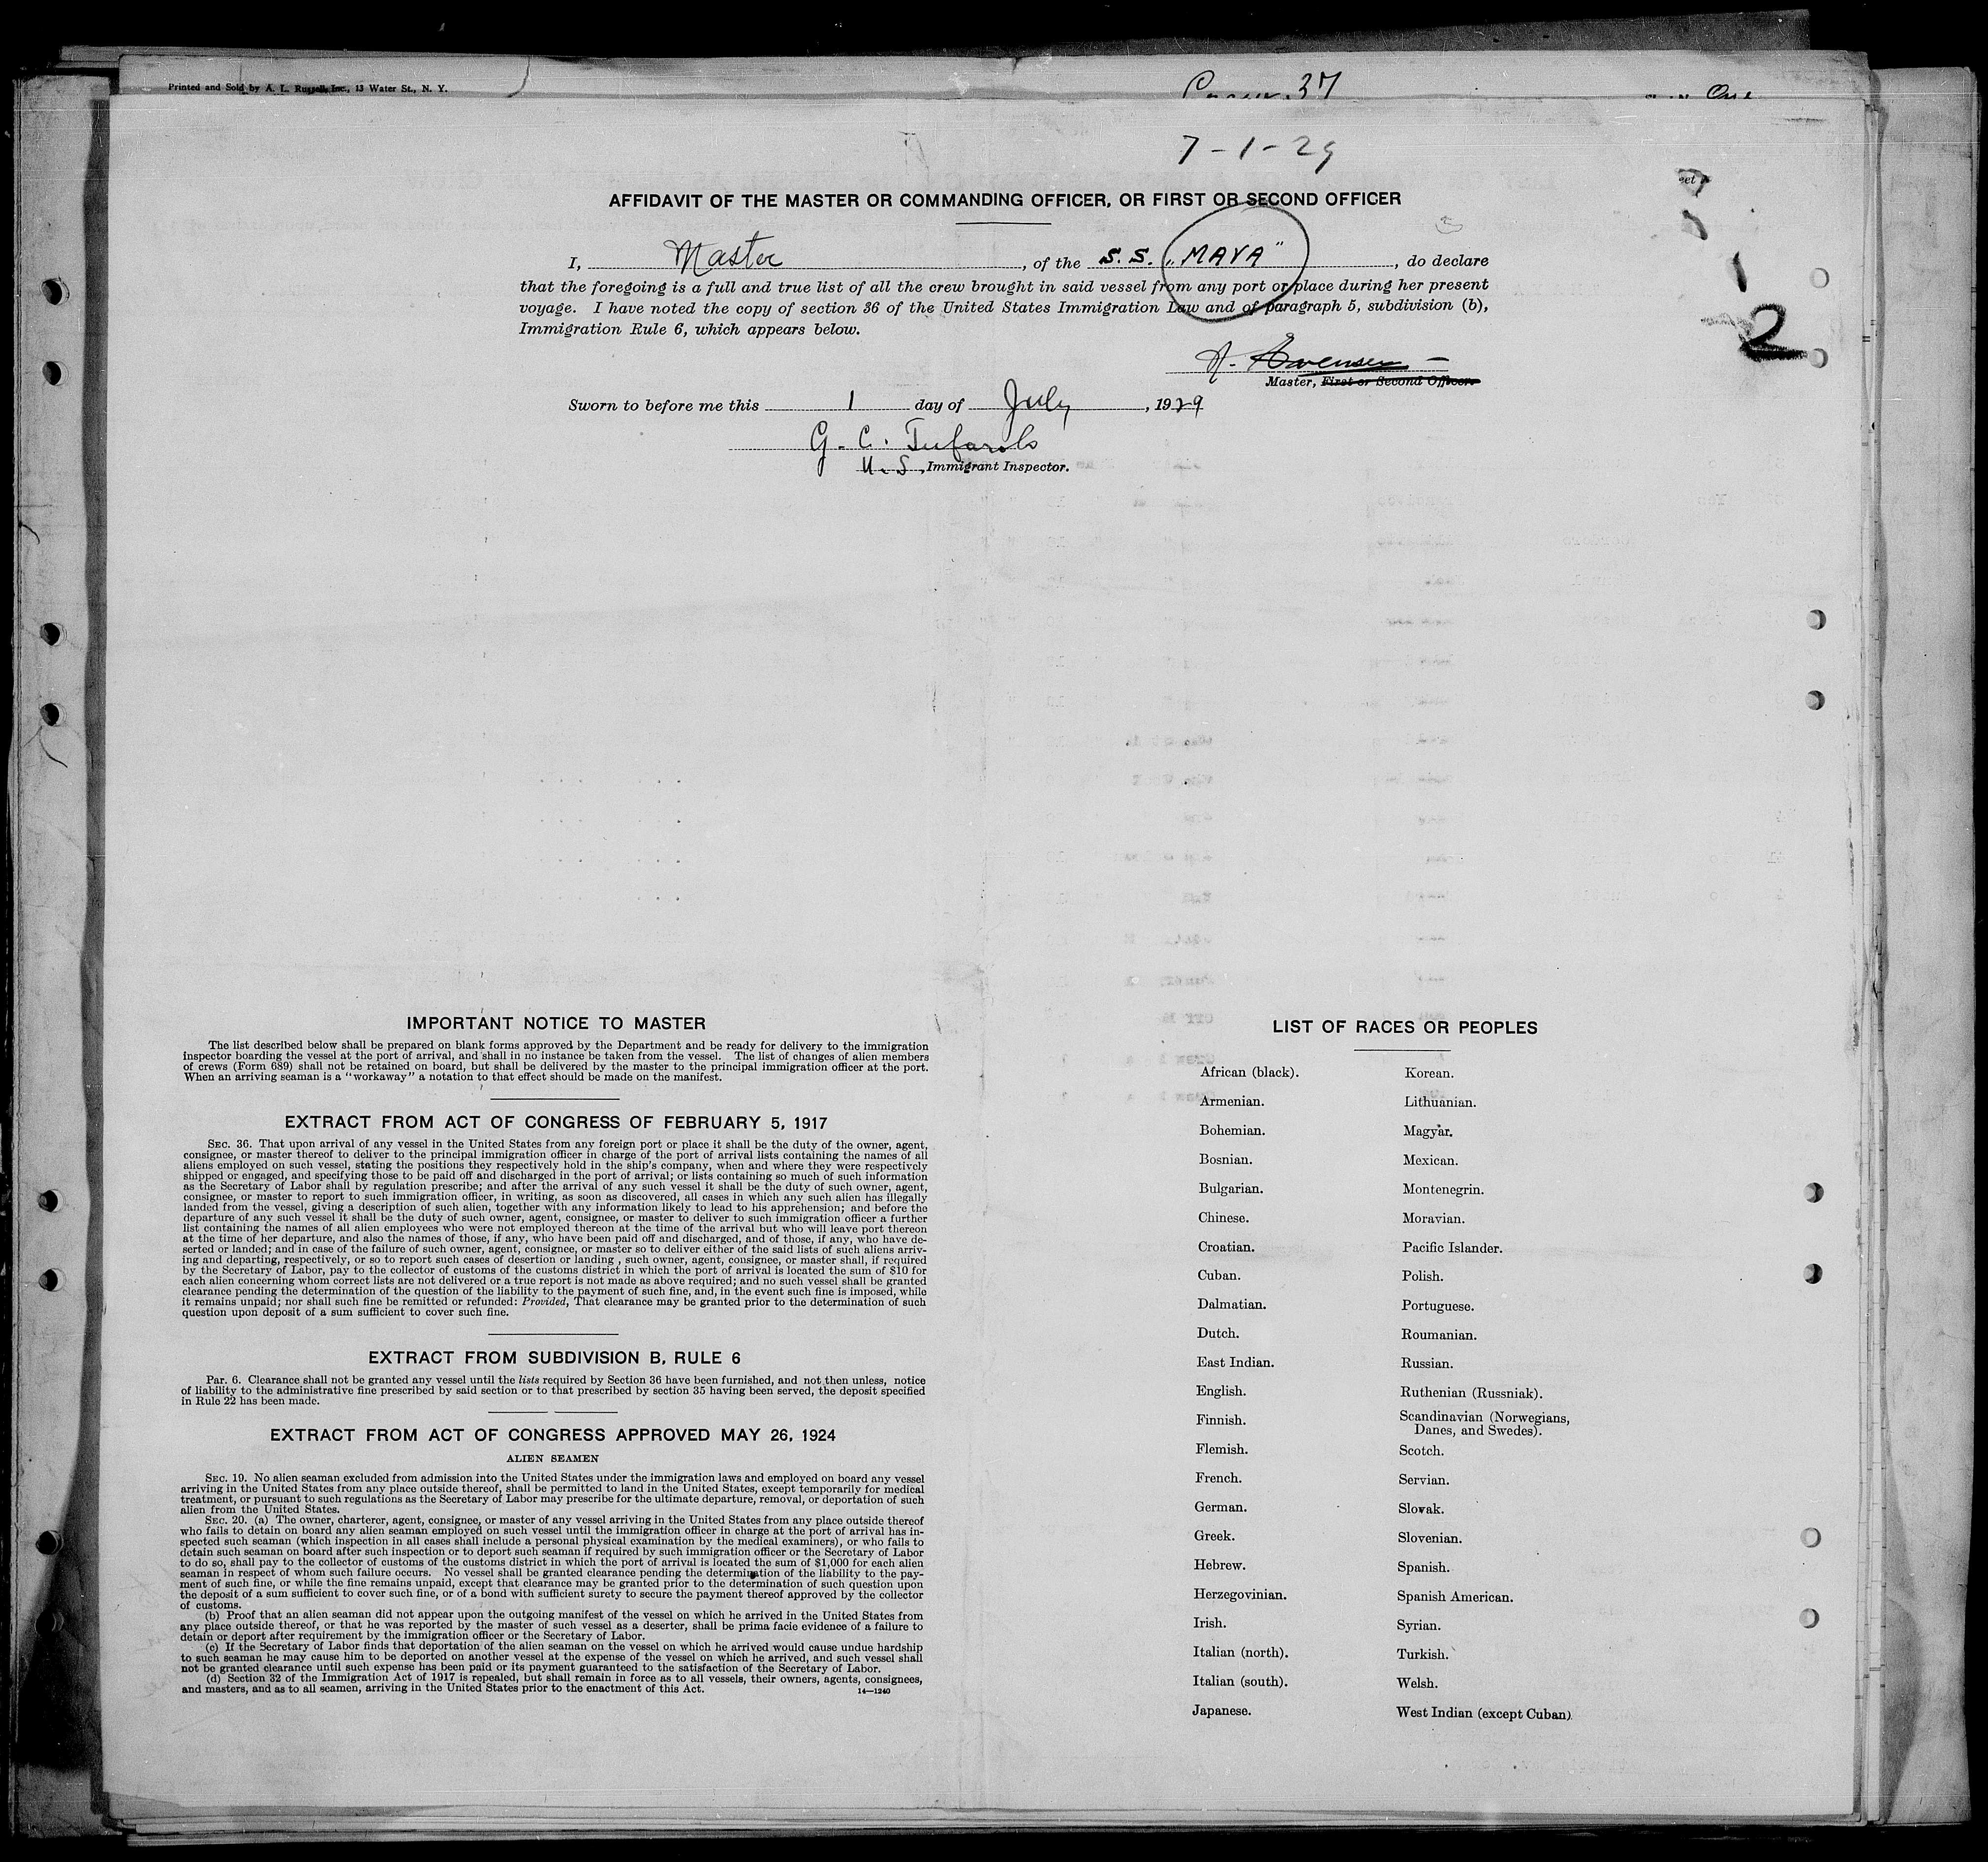 Printed and Sold by A. L. Russell, Inc., 13 Water St., N. Y.
37
One
7-1-29
AFFIDAVIT OF THE MASTER OR COMMANDING OFFICER, OR FIRST OR SECOND OFFICER
I, Master, of the S. S. "MAYA", do declare
that the foregoing is a full and true list of all the crew brought in said vessel from any port or place during her present
voyage. I have noted the copy of section 36 of the United States Immigration Law and of paragraph 5, subdivision (b),
Immigration Rule 6, which appears below.
1
2
Master, First or Second Officer.
Sworn to before me this 1 day of July, 1929
G. C.
U. S. Immigrant Inspector.
IMPORTANT NOTICE TO MASTER
The list described below shall be prepared on blank forms approved by the Department and be ready for delivery to the immigration
inspector boarding the vessel at the port of arrival, and shall in no instance be taken from the vessel. The list of changes of alien members
of crews (Form 689) shall not be retained on board, but shall be delivered by the master to the principal immigration officer at the port.
When an arriving seaman is a "workaway" a notation to that effect should be made on the manifest.
EXTRACT FROM ACT OF CONGRESS OF FEBRUARY 5, 1917
SEC. 36. That upon arrival of any vessel in the United States from any foreign port or place it shall be the duty of the owner, agent,
consignee, or master thereof to deliver to the principal immigration officer in charge of the port of arrival lists containing the names of all
aliens employed on such vessel, stating the positions they respectively hold in the ship's company, when and where they were respectively
shipped or engaged, and specifying those to be paid off and discharged in the port of arrival; or lists containing so much of such information
as the Secretary of Labor shall by regulation prescribe; and after the arrival of any such vessel it shall be the duty of such owner, agent,
consignee, or master to report to such immigration officer, in writing, as soon as discovered, all cases in which any such alien has illegally
landed from the vessel, giving a description of such alien, together with any information likely to lead to his apprehension; and before the
departure of any such vessel it shall be the duty of such owner, agent, consignee, or master to deliver to such immigration officer a further
list containing the names of all alien employees who were not employed thereon at the time of the arrival but who will leave port thereon
at the time of her departure, and also the names of those, if any, who have been paid off and discharged, and of those, if any, who have de-
serted or landed; and in case of the failure of such owner, agent, consignee, or master so to deliver either of the said lists of such aliens arriv-
ing and departing, respectively, or so to report such cases of desertion or landing , such owner, agent, consignee, or master shall, if required
by the Secretary of Labor, pay to the collector of customs of the customs district in which the port of arrival is located the sum of $10 for
each alien concerning whom correct lists are not delivered or a true report is not made as above required; and no such vessel shall be granted
clearance pending the determination of the question of the liability to the payment of such fine, and, in the event such fine is imposed, while
it remains unpaid; nor shall such fine be remitted or refunded: Provided, That clearance may be granted prior to the determination of such
question upon deposit of a sum sufficient to cover such fine.
EXTRACT FROM SUBDIVISION B, RULE 6
Par. 6. Clearance shall not be granted any vessel until the lists required by Section 36 have been furnished, and not then unless, notice
of liability to the administrative fine prescribed by said section or to that prescribed by section 35 having been served, the deposit specified
in Rule 22 has been made.
EXTRACT FROM ACT OF CONGRESS APPROVED MAY 26, 1924
ALIEN SEAMEN
SEC. 19. No alien seaman excluded from admission into the United States under the immigration laws and employed on board any vessel
arriving in the United States from any place outside thereof, shall be permitted to land in the United States, except temporarily for medical
treatment, or pursuant to such regulations as the Secretary of Labor may prescribe for the ultimate departure, removal, or deportation of such
alien from the United States.
SEC. 20. (a) The owner, charterer, agent, consignee, or master of any vessel arriving in the United States from any place outside thereof
who fails to detain on board any alien seaman employed on such vessel until the immigration officer in charge at the port of arrival has in-
spected such seaman (which inspection in all cases shall include a personal physical examination by the medical examiners), or who fails to
detain such seaman on board after such inspection or to deport such seaman if required by such immigration officer or the Secretary of Labor
to do so, shall pay to the collector of customs of the customs district in which the port of arrival is located the sum of $1,000 for each alien
seaman in respect of whom such failure occurs. No vessel shall be granted clearance pending the determination of the liability to the pay-
ment of such fine, or while the fine remains unpaid, except that clearance may be granted prior to the determination of such question upon
the deposit of a sum sufficient to cover such fine, or of a bond with sufficient surety to secure the payment thereof approved by the collector
of customs.
(b) Proof that an alien seaman did not appear upon the outgoing manifest of the vessel on which he arrived in the United States from
any place outside thereof, or that he was reported by the master of such vessel as a deserter, shall be prima facie evidence of a failure to
detain or deport after requirement by the immigration officer or the Secretary of Labor.
(c) If the Secretary of Labor finds that deportation of the alien seaman on the vessel on which he arrived would cause undue hardship
to such seaman he may cause him to be deported on another vessel at the expense of the vessel on which he arrived, and such vessel shall
not be granted clearance until such expense has been paid or its payment guaranteed to the satisfaction of the Secretary of Labor.
(d) Section 32 of the Immigration Act of 1917 is repealed, but shall remain in force as to all vessels, their owners, agents, consignees,
and masters, and as to all seamen, arriving in the United States prior to the enactment of this Act.
14—1240
LIST OF RACES OR PEOPLES
African (black).
Armenian.
Bohemian.
Bosnian.
Bulgarian.
Chinese.
Croatian.
Cuban.
Dalmatian.
Dutch.
East Indian.
English.
Finnish.
Flemish.
French.
German.
Greek.
Hebrew.
Herzegovinian.
Irish.
Italian (north).
Italian (south).
Japanese.
Korean.
Lithuanian.
Magyar.
Mexican.
Montenegrin.
Moravian.
Pacific Islander.
Polish.
Portuguese.
Roumanian.
Russian.
Ruthenian (Russniak).
Scandinavian (Norwegians,
Danes, and Swedes).
Scotch.
Servian.
Slovak.
Slovenian.
Spanish.
Spanish American.
Syrian.
Turkish.
Welsh.
West Indian (except Cuban)